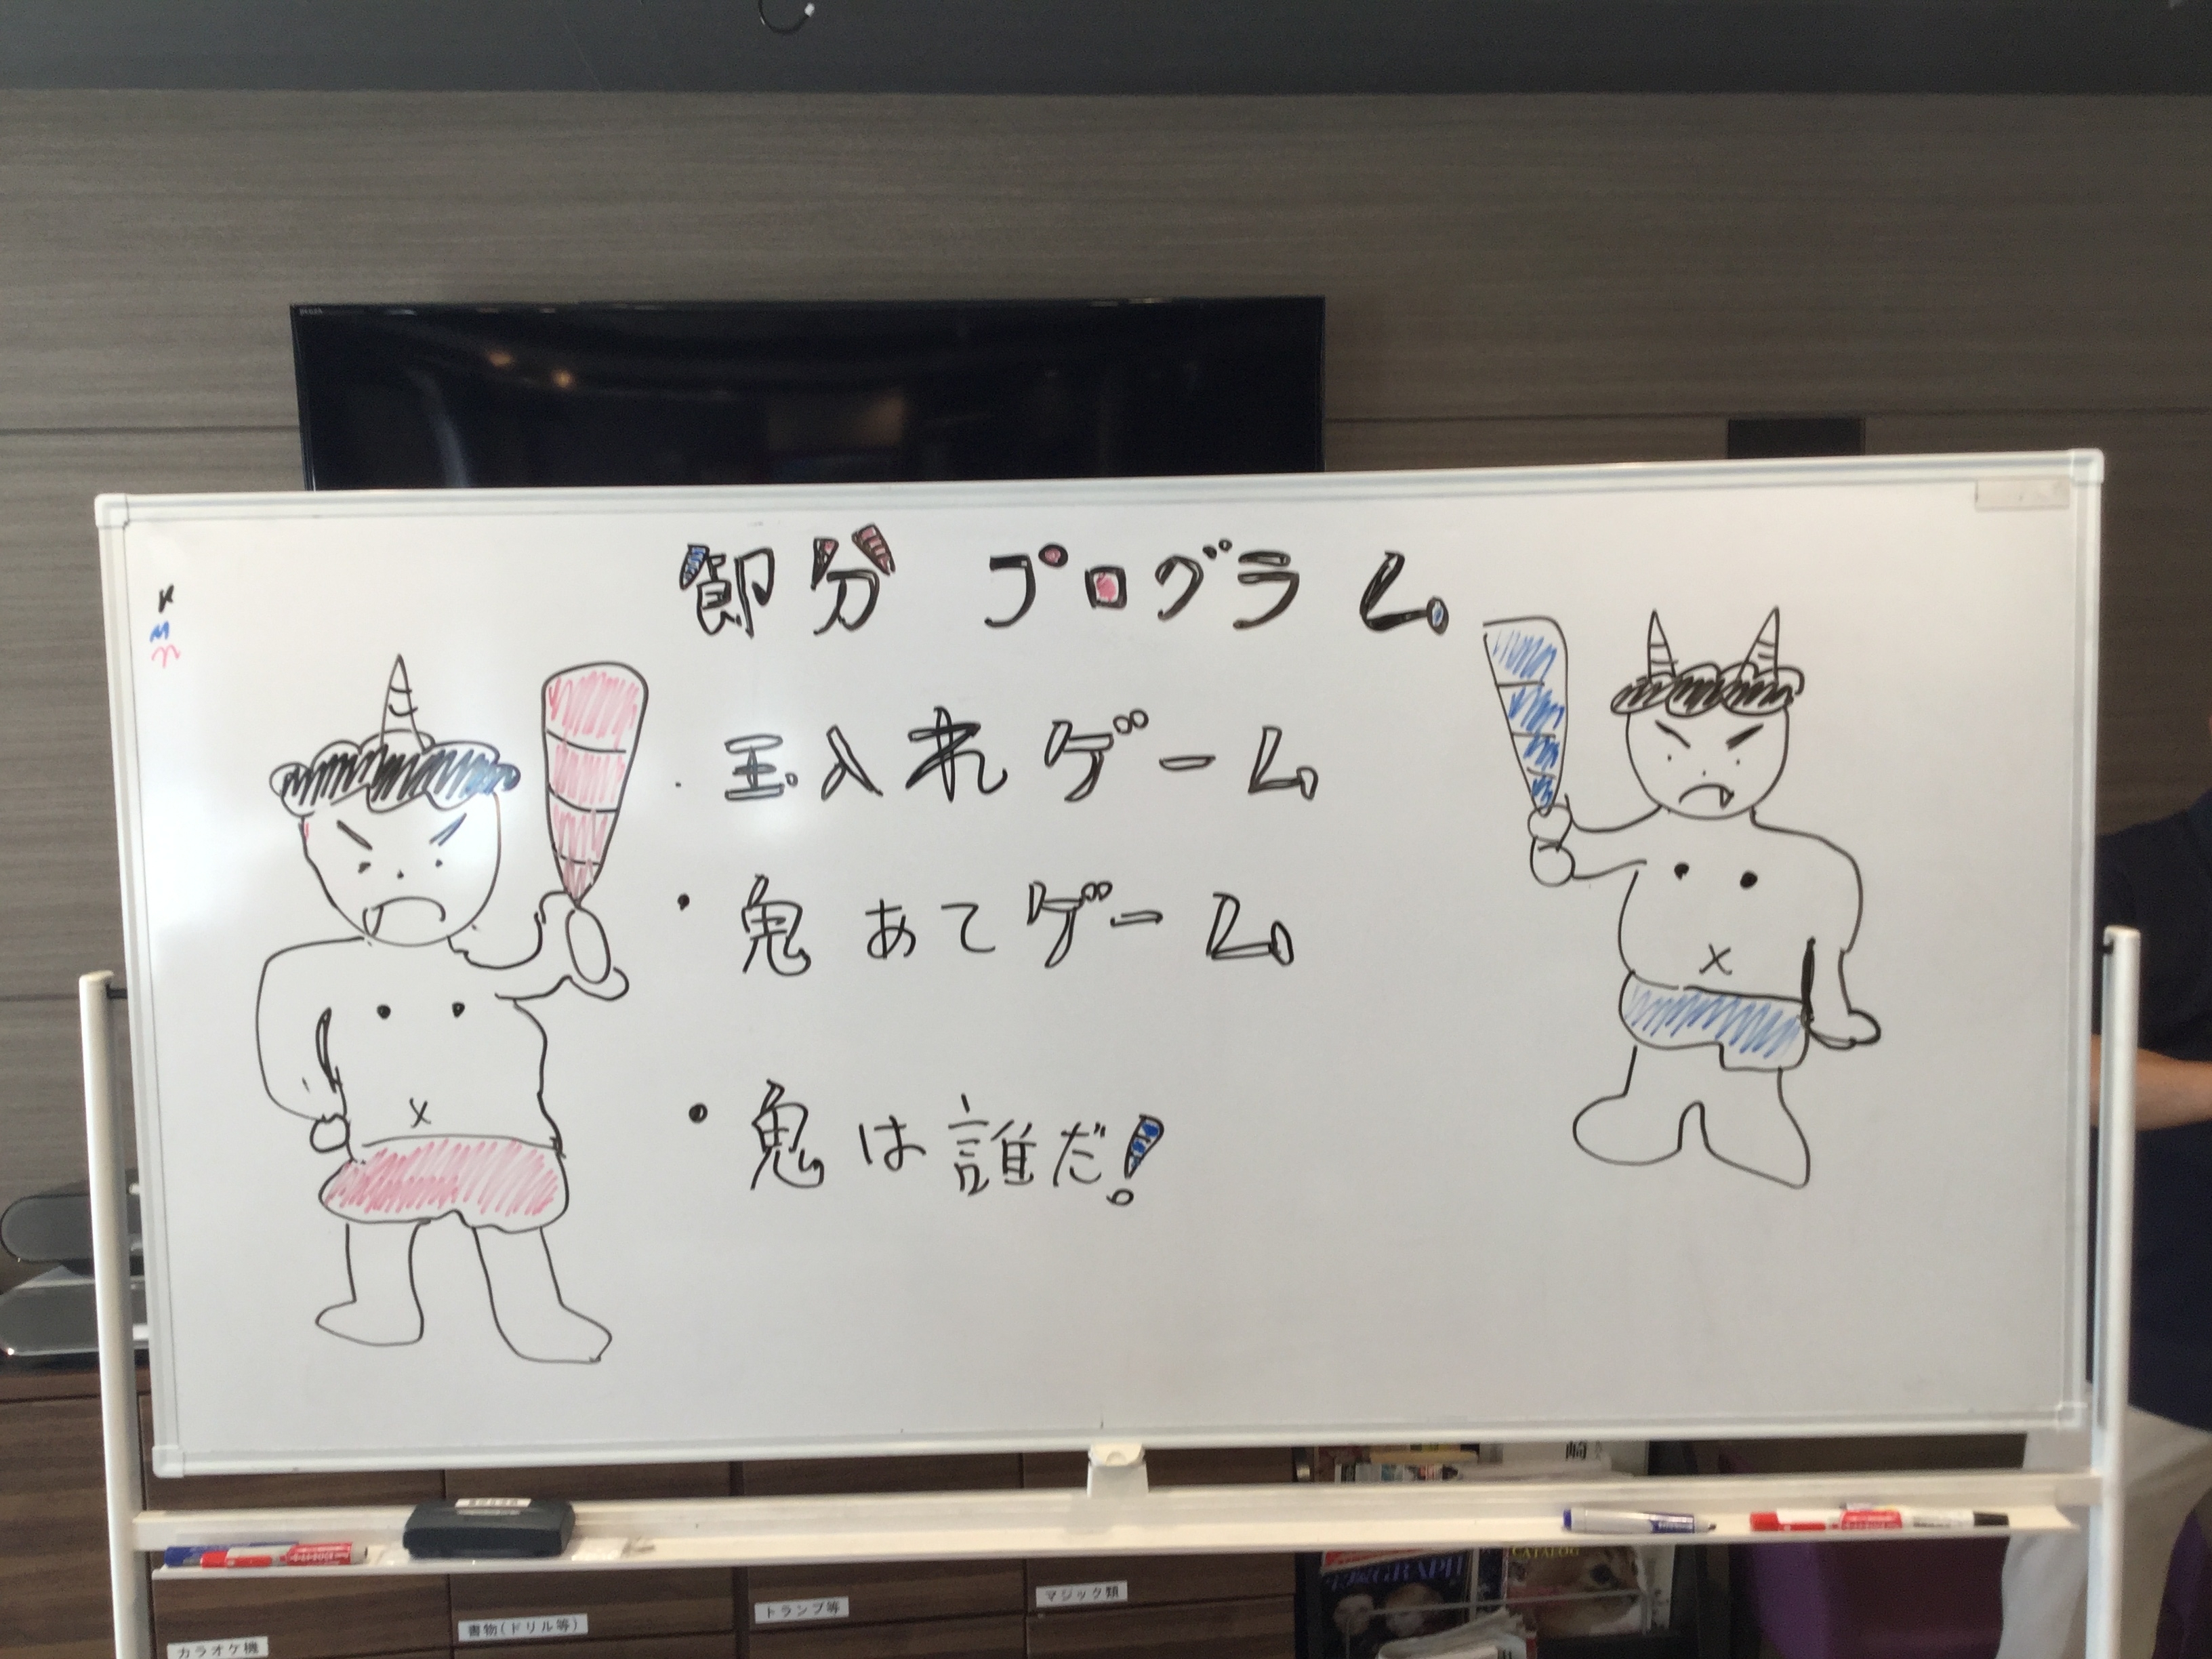 節分 プログラム
・玉入れゲーム
・鬼あてゲーム
・鬼は誰だ!
カラオケ機
書物(ドリル等)
トランプ等
マジック類
GRAPH
CATALOG
崎